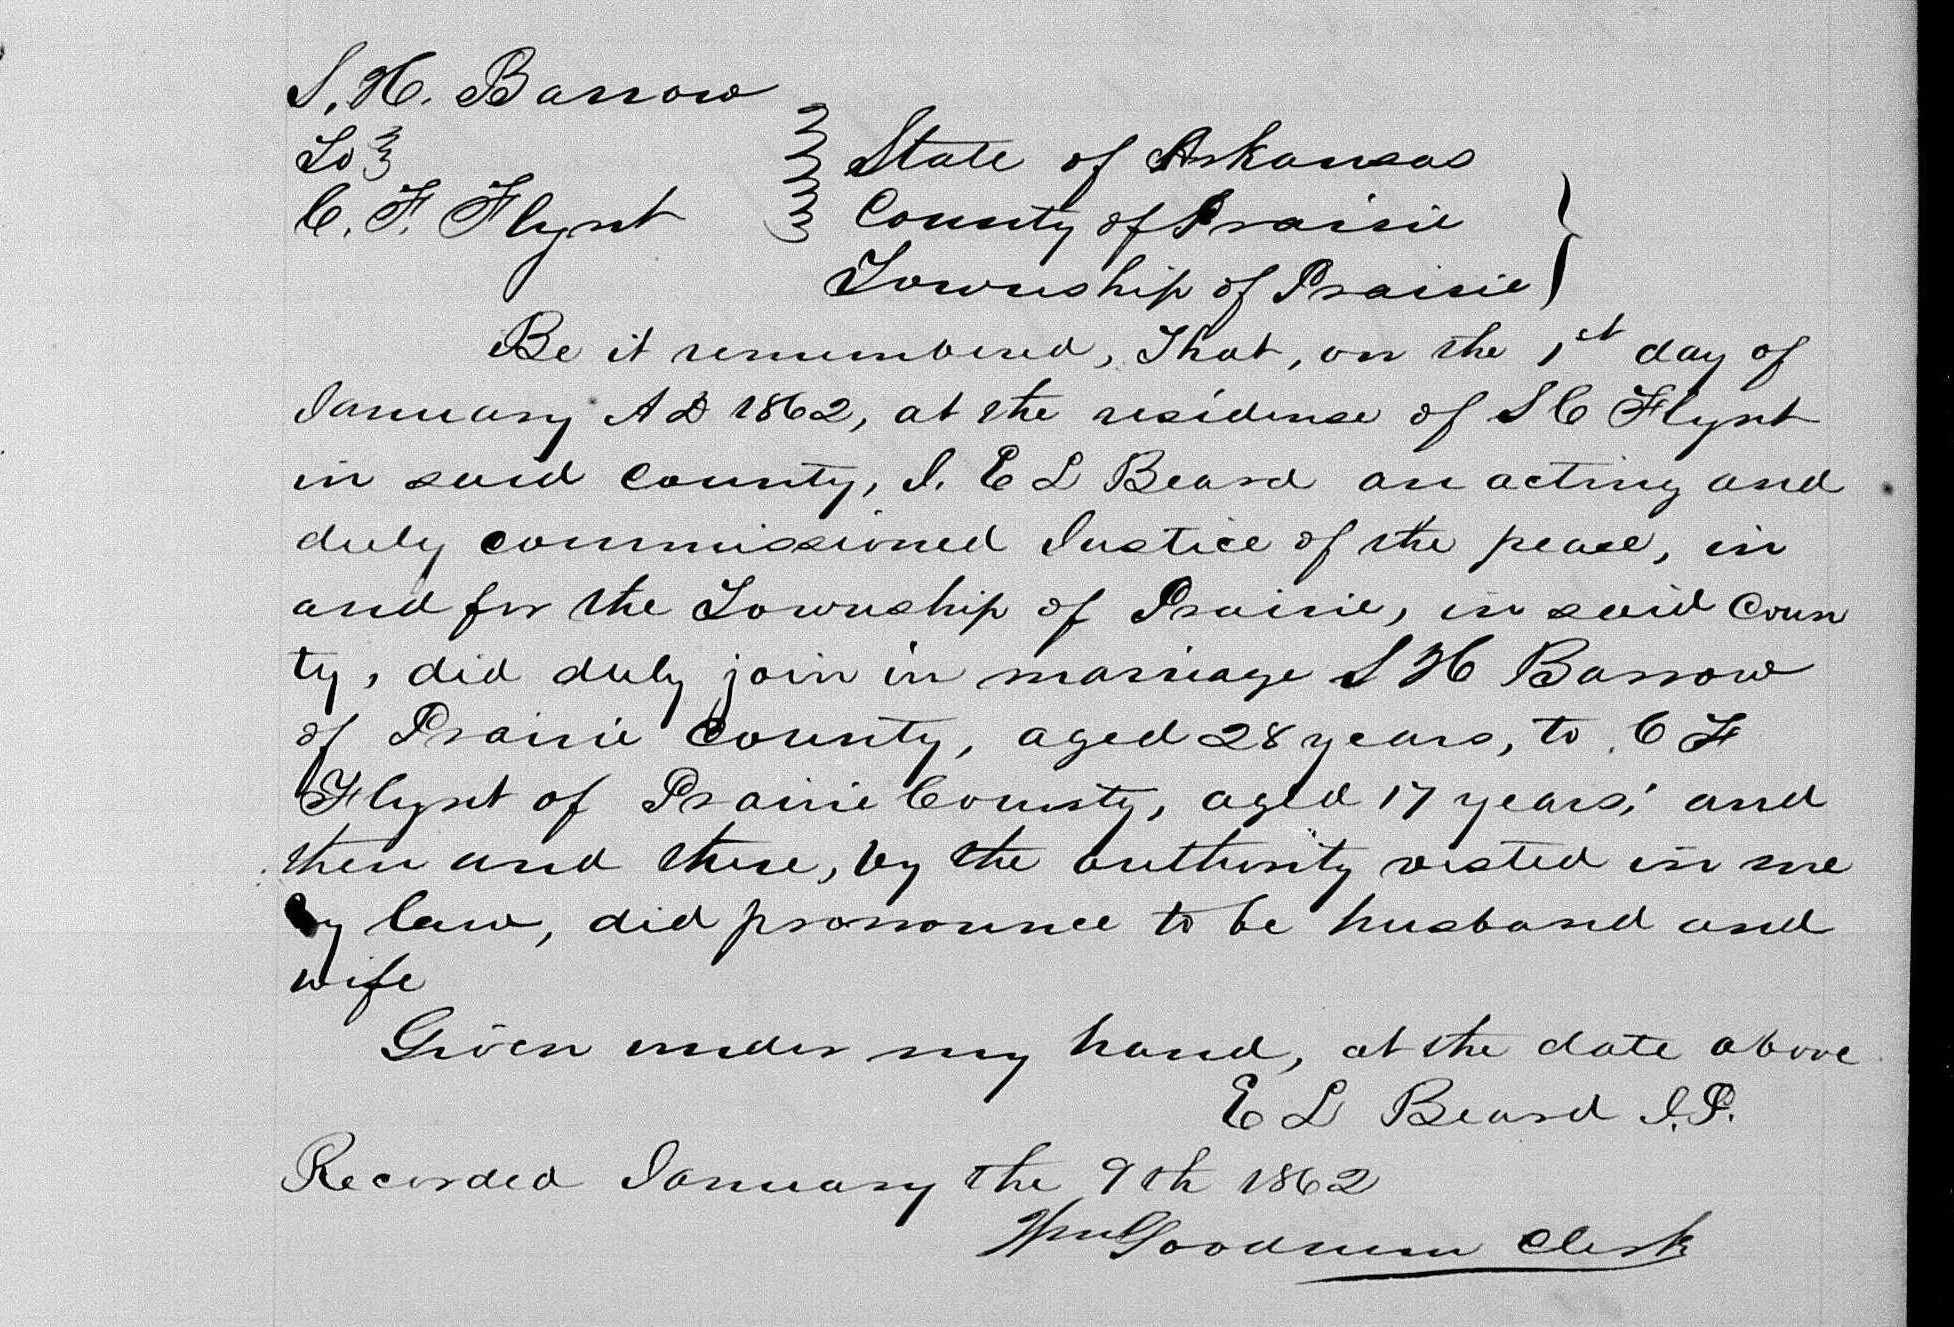 S. H. Barrow
To
C. F. Flynt
State of Arkansas
County of Prairie
Township of Prairie
Be it remembered, That, on the 1st day of
January AD 1862, at the residence of S C Flynt
in said County, I. E L Beard an acting and
duly commissioned Justice of the peace, in
and for the Township of Prairie, in said Coun
ty, did duly join in marriage S H Barrow
of Prairie County, aged 28 years, to C F
Flynt of Prairie County, aged 17 years; and
then and there, by the authority vested in me
by law, did pronounce to be husband and
wife
Given under my hand, at the date above
E L Beard J.P.
Recorded January the 9th 1862
Wm Goodrum Clerk